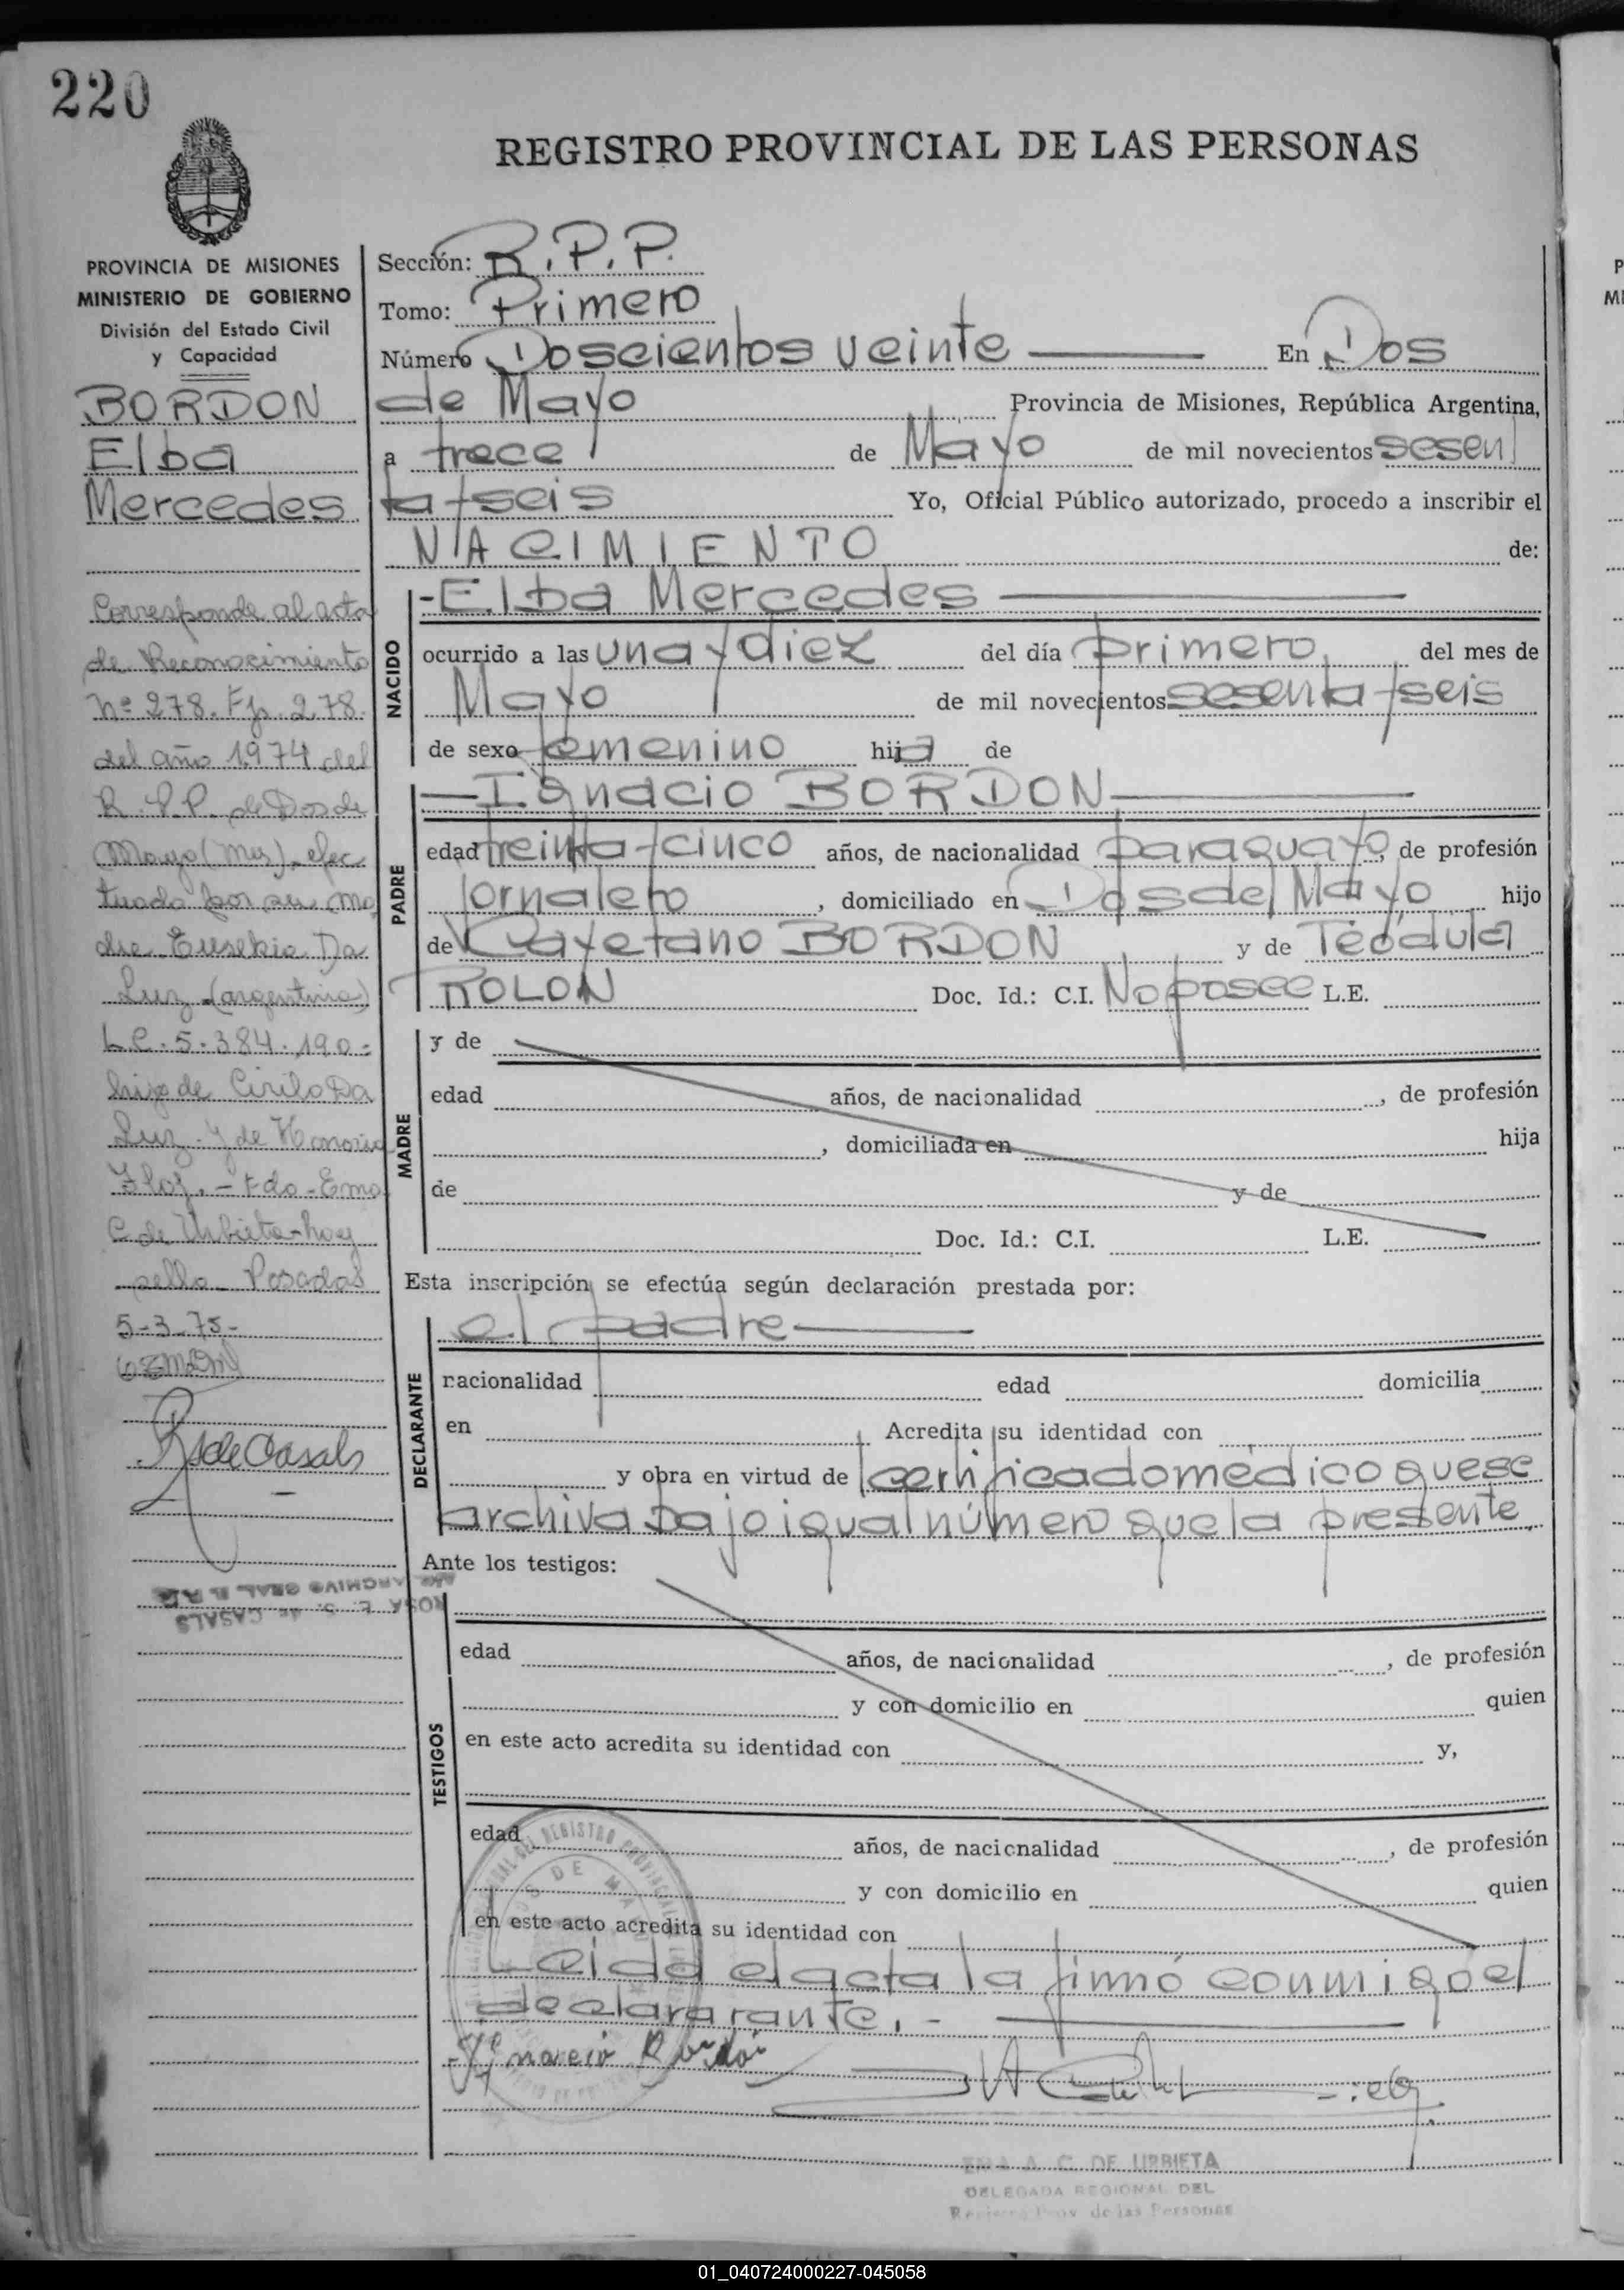 220
REGISTRO PROVINCIAL DE LAS PERSONAS
PROVINCIA DE MISIONES
MINISTERIO DE GOBIERNO
División del Estado Civil
y Capacidad
BORDON
Elba
Mercedes
Corresponde al acta
de Reconocimiento
Nº 278. Fº 278.
del año 1974 del
R.P.P. de Dos de
Mayo (Mns), efec
tuada por su ma
dre Eusebia Da
Luz (argentina)
L.C. 5.384.190-
hija de Cirilo Da
Luz y de Honoria
Fdo - Ema
C de Urbieta - hay
sello Posadas
5-3-75-
R S de Casals
ROSA E. S. de CASALS
ARCHIVO GRAL
Sección: R.P.P.
Tomo: Primero
Número Doscientos veinte En Dos
de Mayo Provincia de Misiones, República Argentina,
a trece de Mayo de mil novecientos sesen
ta y seis Yo, Oficial Público autorizado, procedo a inscribir el
NACIMIENTO de:
NACIDO
- Elba Mercedes
ocurrido a las una y diez del día primero del mes de
Mayo de mil novecientos sesenta y seis
de sexo femenino hija de
PADRE
Ignacio BORDON
edad treinta y cinco años, de nacionalidad paraguayo, de profesión
jornalero, domiciliado en Dos de Mayo hijo
de Cayetano BORDON y de Teódula
ROLON Doc. Id.: C.I. No posee L.E.
MADRE
y de
edad años, de nacionalidad , de profesión
, domiciliada en hija
de y de
Doc. Id.: C.I. L.E.
Esta inscripción se efectúa según declaración prestada por:
DECLARANTE
el padre
nacionalidad edad domicilia
en Acredita su identidad con
y obra en virtud de certificado médico que se
archiva bajo igual número que la presente.
Ante los testigos:
TESTIGOS
edad años, de nacionalidad , de profesión
y con domicilio en quien
en este acto acredita su identidad con y,
edad años, de nacionalidad , de profesión
y con domicilio en quien
en este acto acredita su identidad con
Leida el acta la firmó conmigo el
declararante.-
Ignacio Bordón
EMA A. C. DE URBIETA
DELEGADA REGIONAL DEL
Registro Prov. de las Personas
01_040724000227-045058